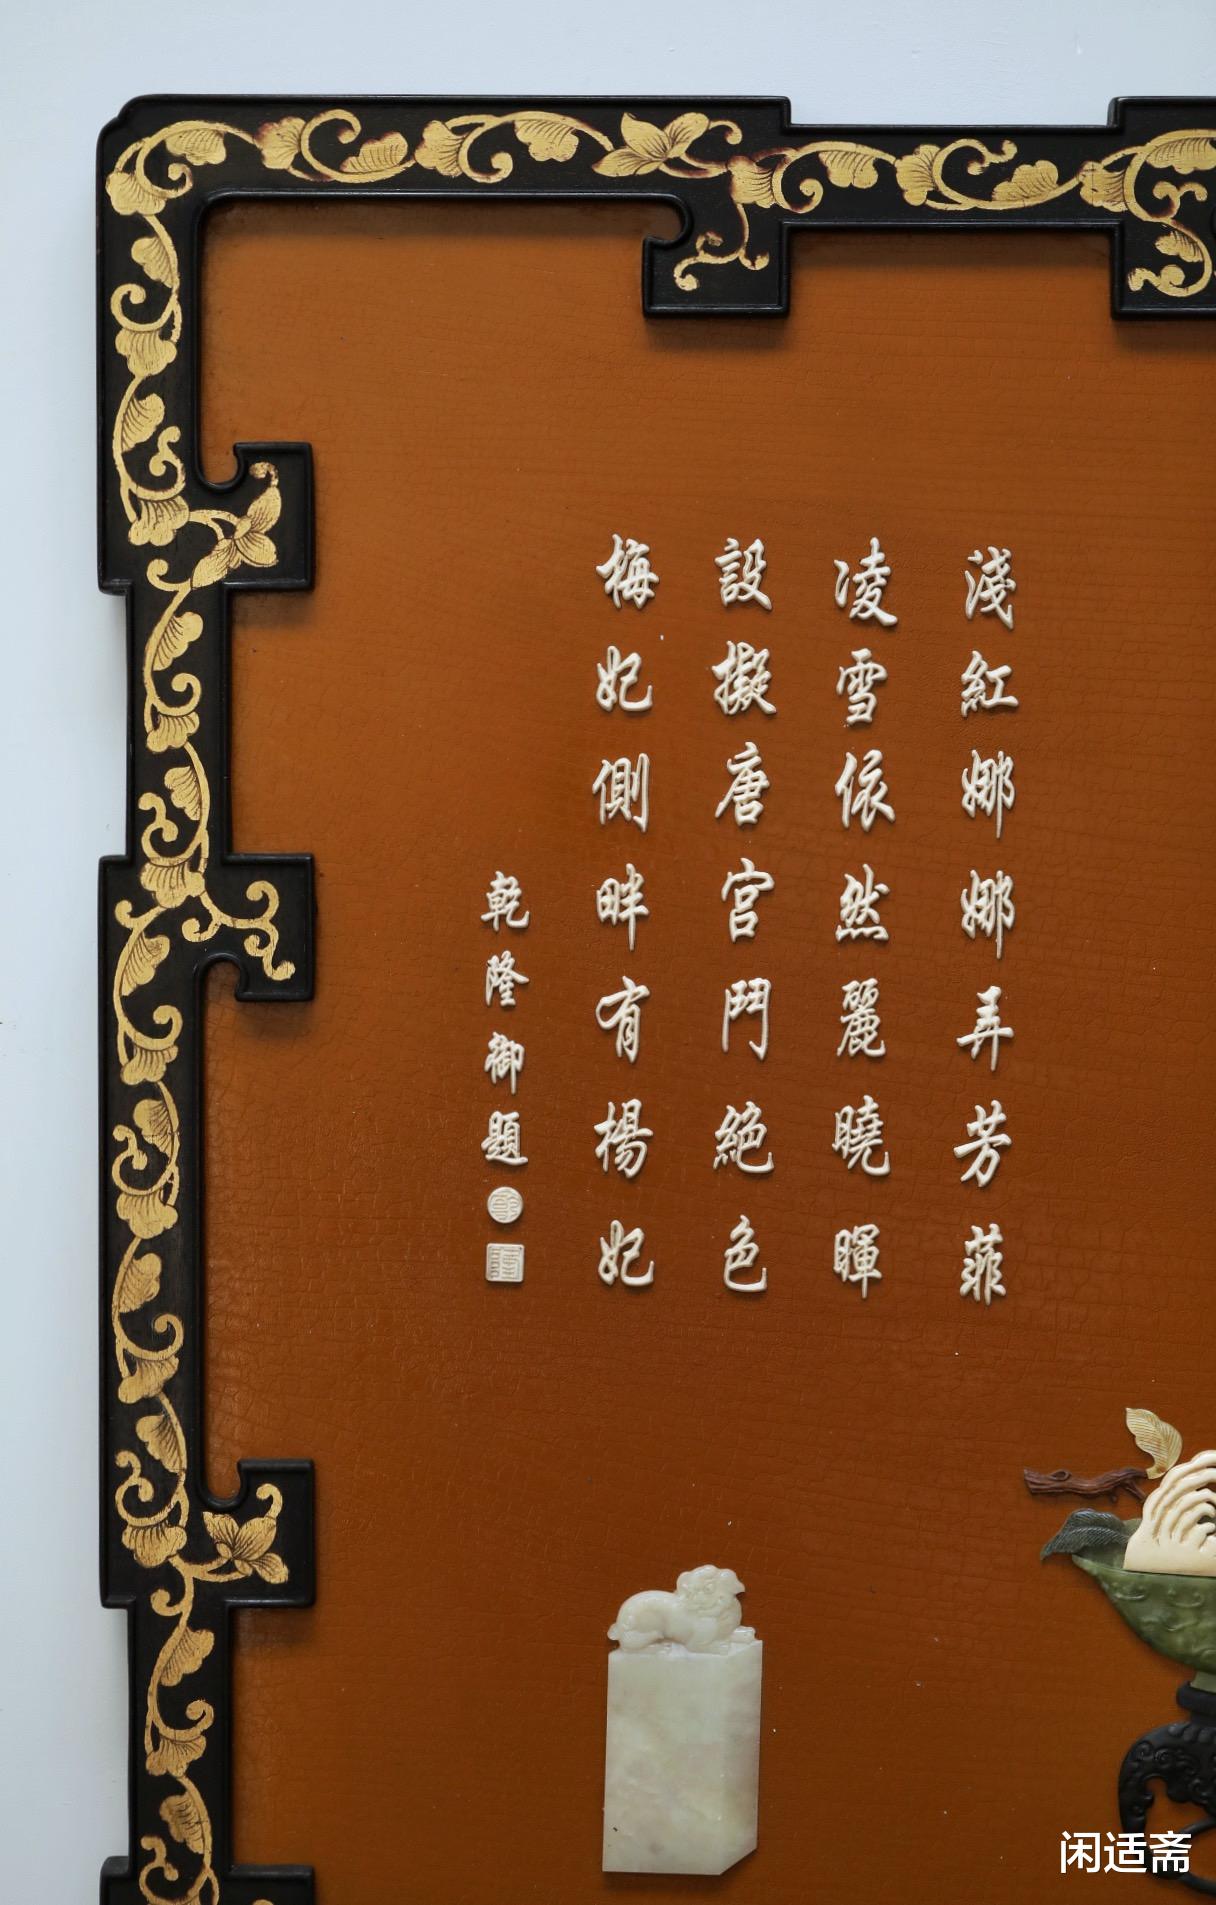 淺紅娜娜弄芳菲
凌雪依然麗曉暉
設擬唐宫鬥絕色
梅妃側畔有楊妃
乾隆御題
闲适斋